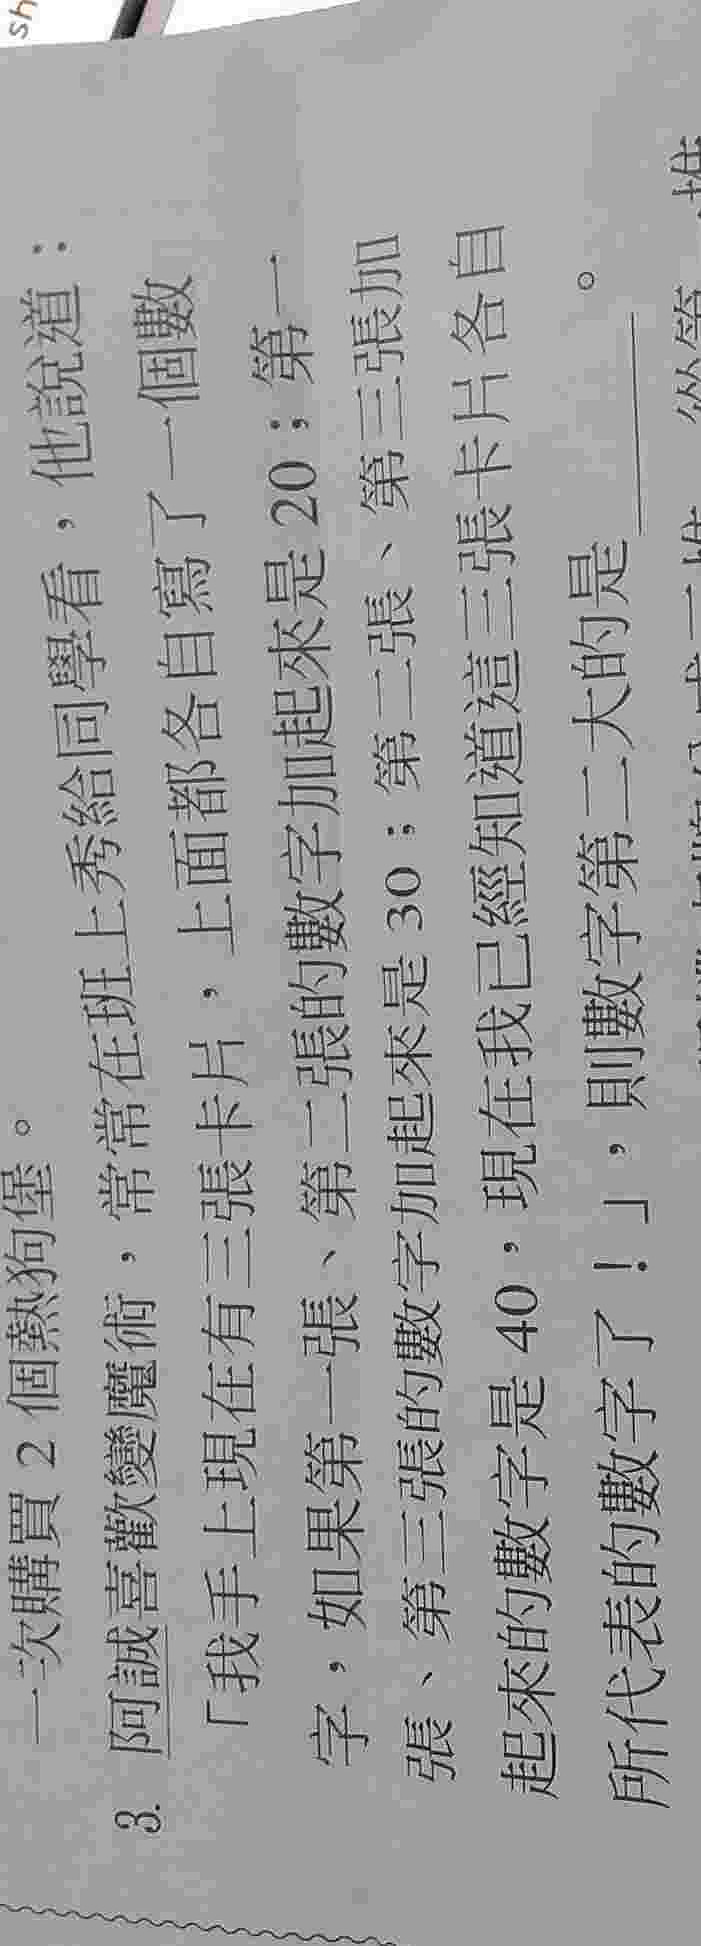 sh
一次購買 2 個熱狗堡。
3. 阿誠喜歡變魔術，常常在班上秀給同學看，他說道：
「我手上現在有三張卡片，上面都各自寫了一個數
字，如果第一張、第二張的數字加起來是 20；第一
張、第三張的數字加起來是 30；第二張、第三張加
起來的數字是 40，現在我已經知道這三張卡片各自
所代表的數字了！」，則數字第二大的是______。